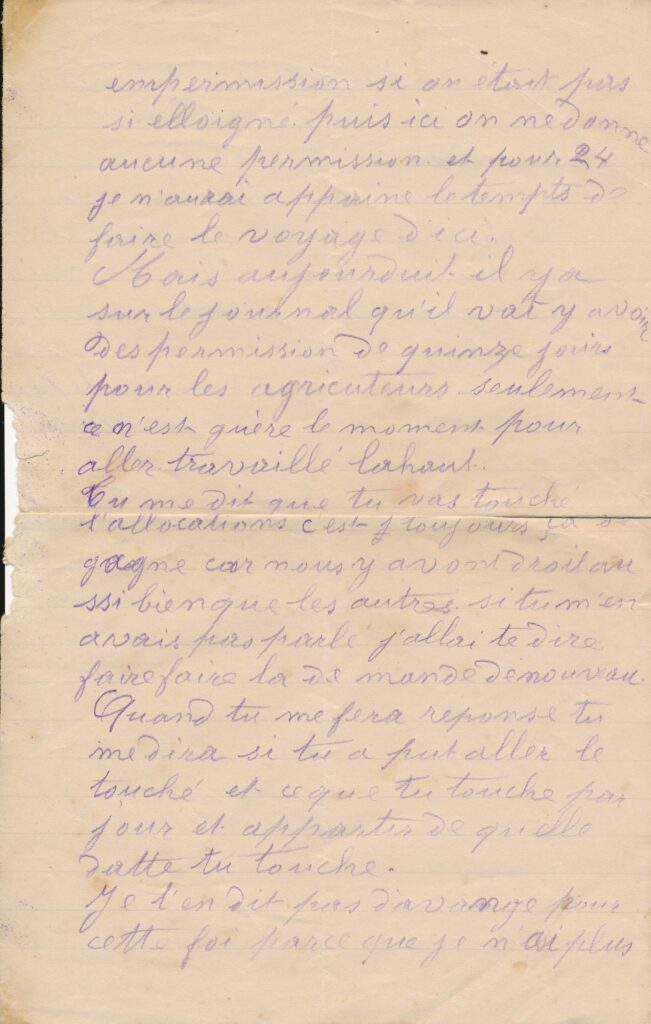 enpermission si on était pas
si elloigné. puis ici on ne donne
aucune permission. et pour 24
je n'aurai appaine le temps de
faire le voyage d'ici.
Mais aujourduit il ya
sur le journal qu'il vat y avoir
des permission de quinze jours
pour les agricuteurs seulement
ce n'est guère le moment pour
aller travaillé lahaut.
Tu me dit que tu vas touché
l'allocations c'est toujours ça de
gagne car nous y avont droit au
ssi bien que les autres. si tu m'en
avais pas parlé j'allai te dire
faire faire la de mande de nouveau.
Quand tu me fera reponse tu
me dira si tu a put aller le
touché et ce que tu touche par
jour et appartir de quelle
datte tu touche.
Je t'en dit pas davange pour
cette foi parce que je n'ai plus